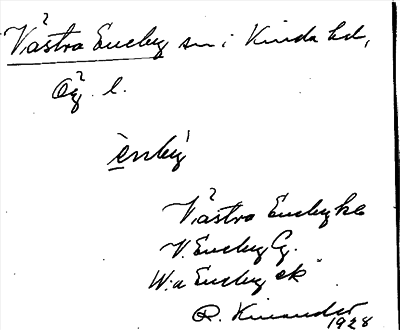 Västra Eneby sn i Kinda hd,
Ög. l.
ènbỳ
Västra Eneby k
V. Eneby Cg.
W:a Eneby ek
R. Kinander
1928